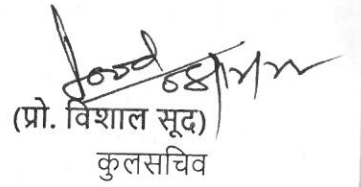 (प्रो. विशाल सूद)
कुलसचिव